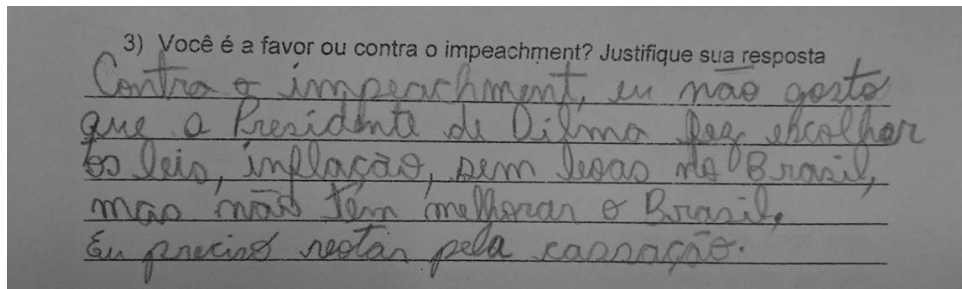 3) Você é a favor ou contra o impeachment? Justifique sua resposta
Contra o impeachment, eu não gosto
que a Presidente de Dilma faz escolher
os leis, inflação, sem no Brasil,
mas não têm melhorar o Brasil,
Eu preciso pela cassação.